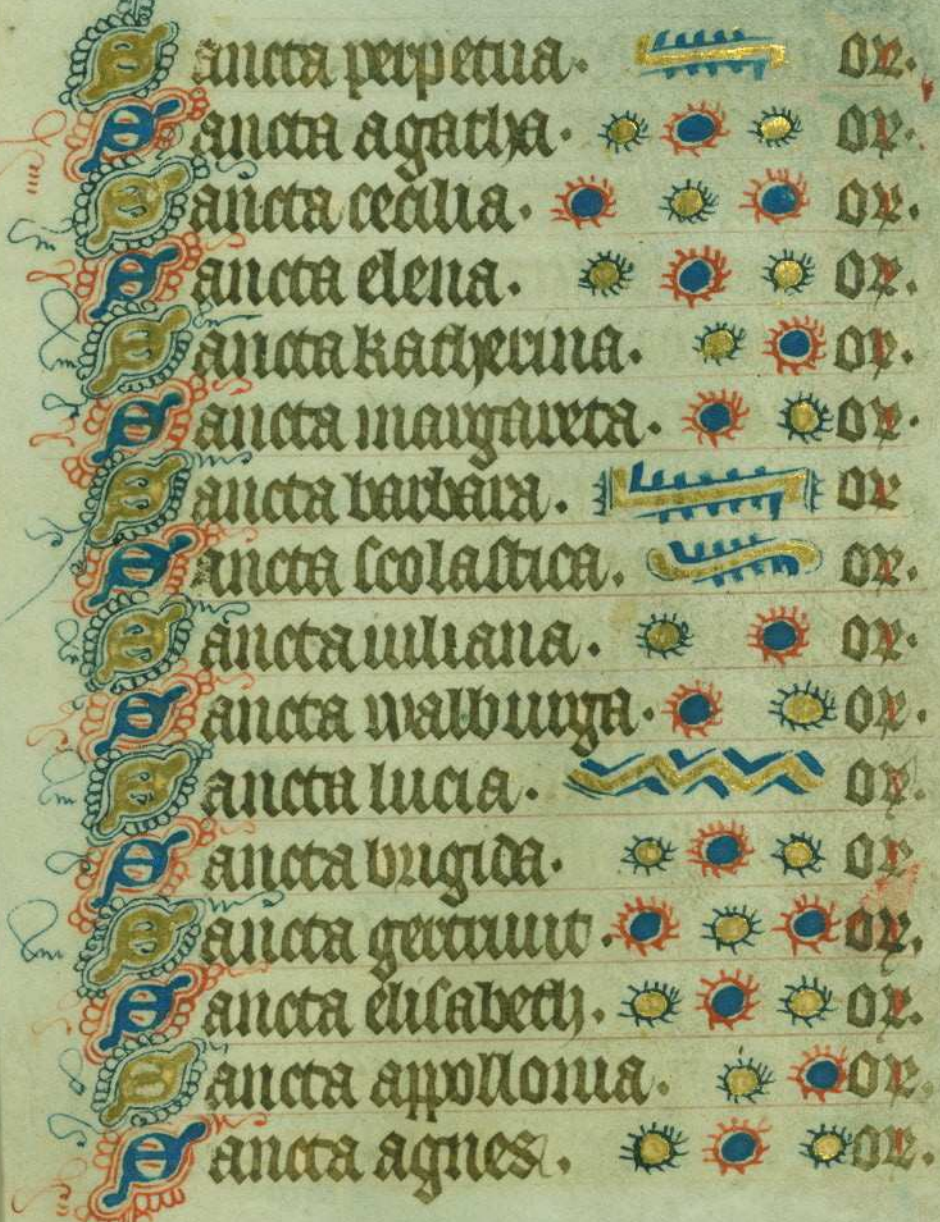 Sancta perpetua. or.
Sancta agatha. or.
Sancta cecilia. or.
Sancta elena. or.
Sancta katherina. or.
Sancta margareta. or.
Sancta barbara. or
Sancta scolastica. or.
Sancta iuliana. or.
Sancta walburga. or.
Sancta lucia. or.
Sancta brigida. or
Sancta gertruut. or.
Sancta elisabeth. or.
Sancta appollonia. or.
Sancta agnes. or.